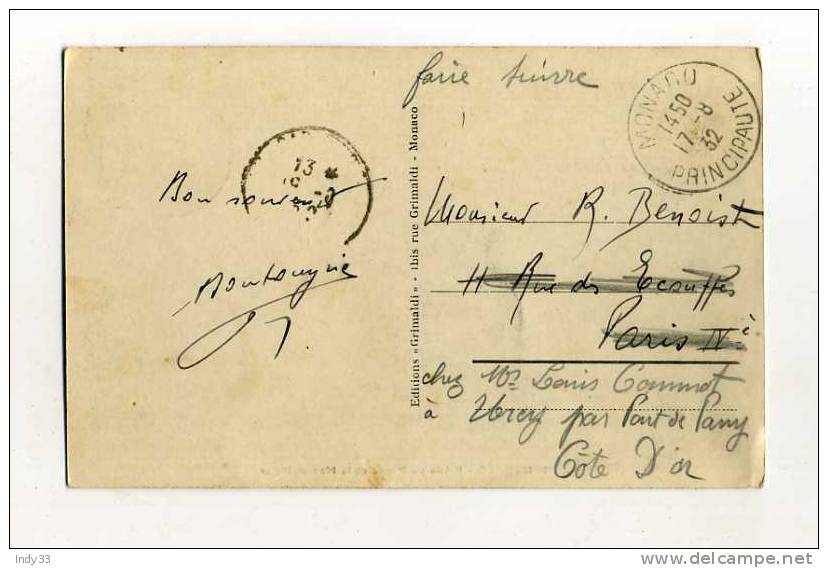 faire suivre
MONACO
1450
17 - 8
32
PRINCIPAUTE
13
Bon souvenir
Editions «Grimaldi» - 1bis rue Grimaldi - Monaco
Monsieur R. Benoist
11 Rue des Ecouffes
Paris IVè
chez Mr Louis
à Urcy par Pont de Pany
Côte D'or
Indy33
www.delcampe.net